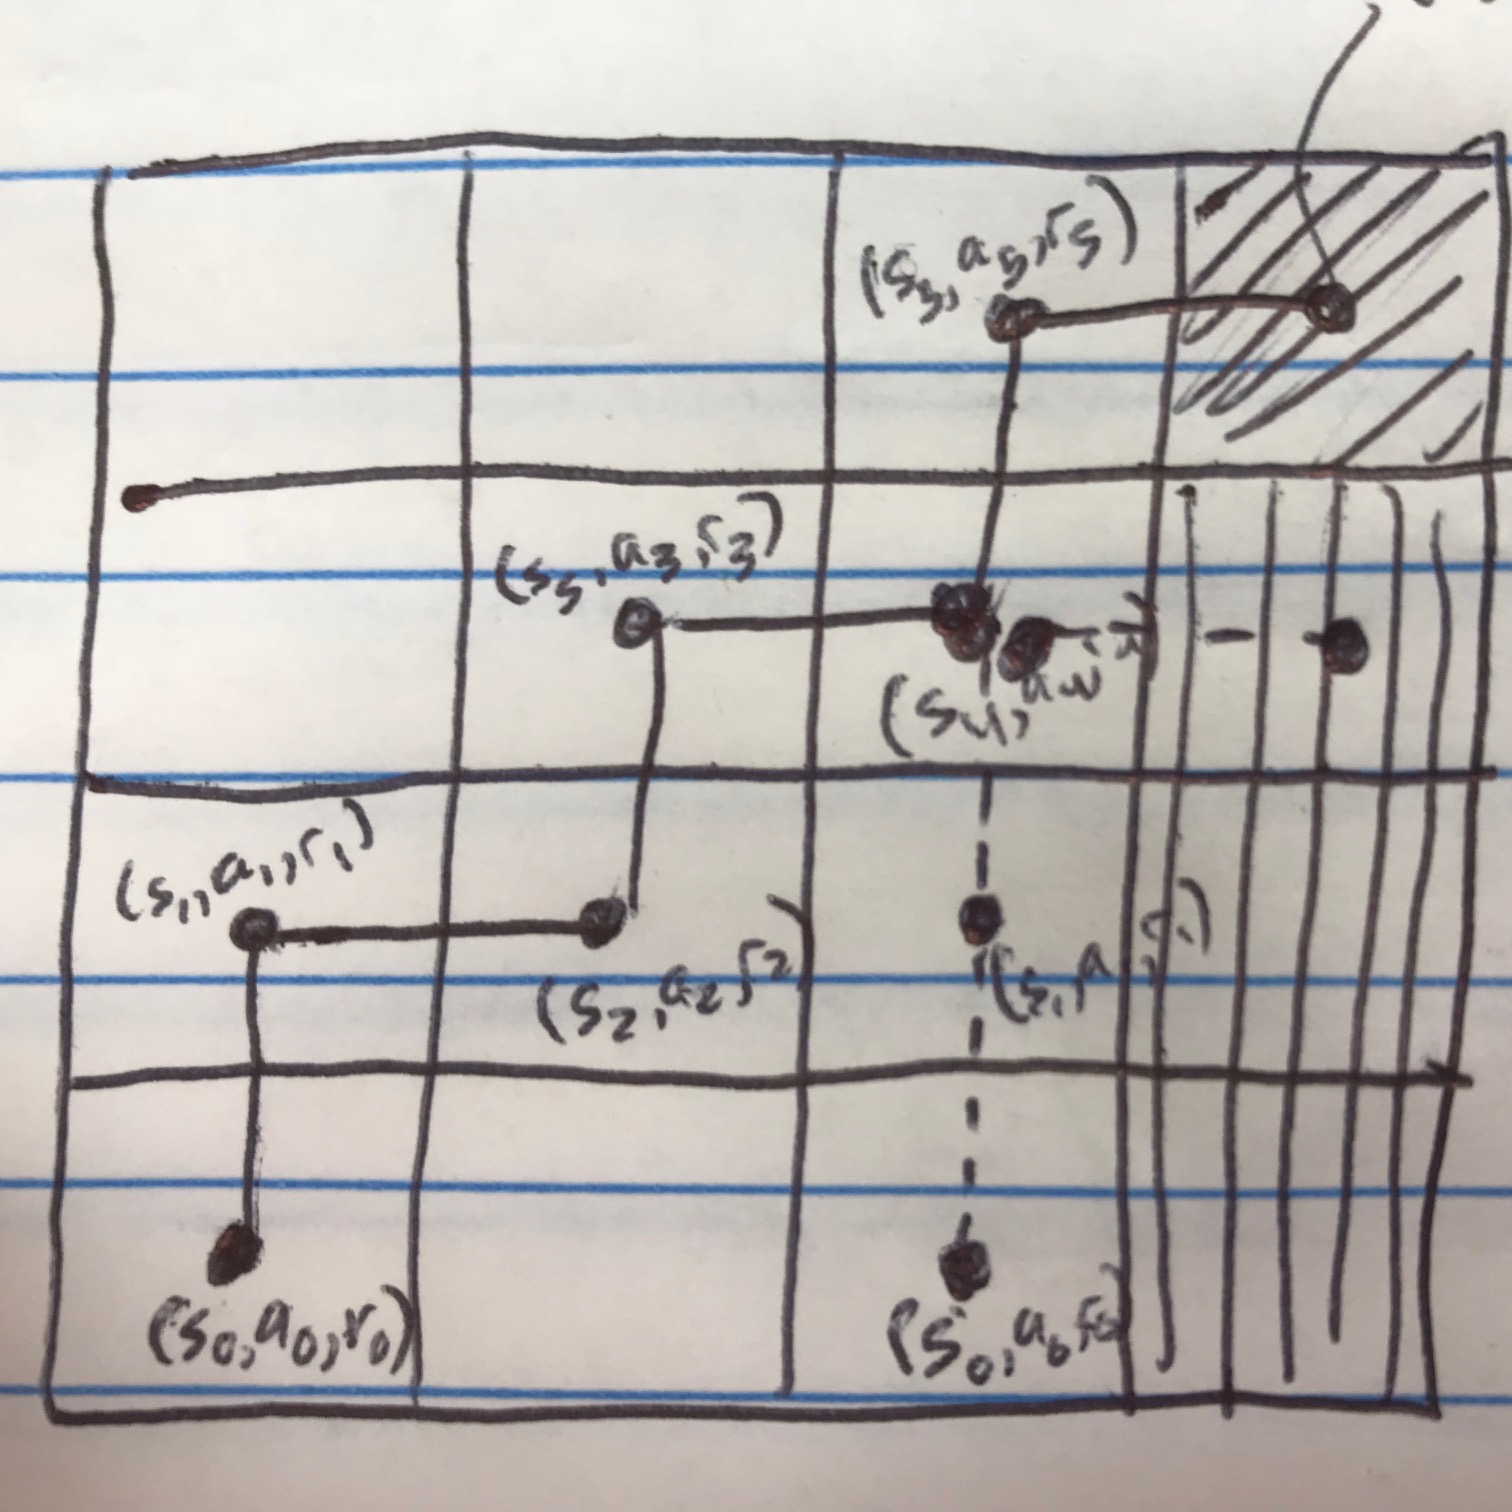 (s₅, a₅, r₅)
(s₃, a₃, r₃)
(s₄, a₄
(s₁, a₁, r₁)
(s₂, a₂, r₂)
(s₁, a
(s₀, a₀, r₀)
(s₀, a₀, r₀)